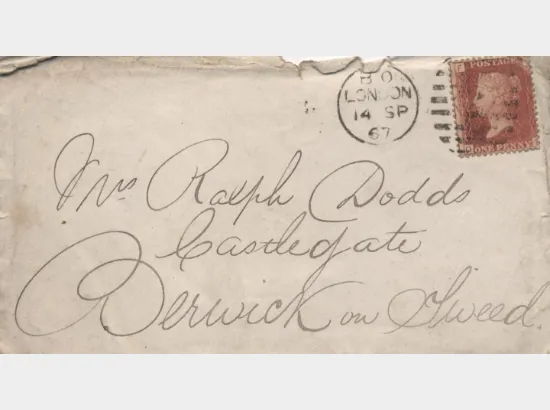 B O
LONDON
14 SP
67
POSTAGE
ONE PENNY
Mrs Ralph Dodds
Castlegate
Berwick on Tweed.